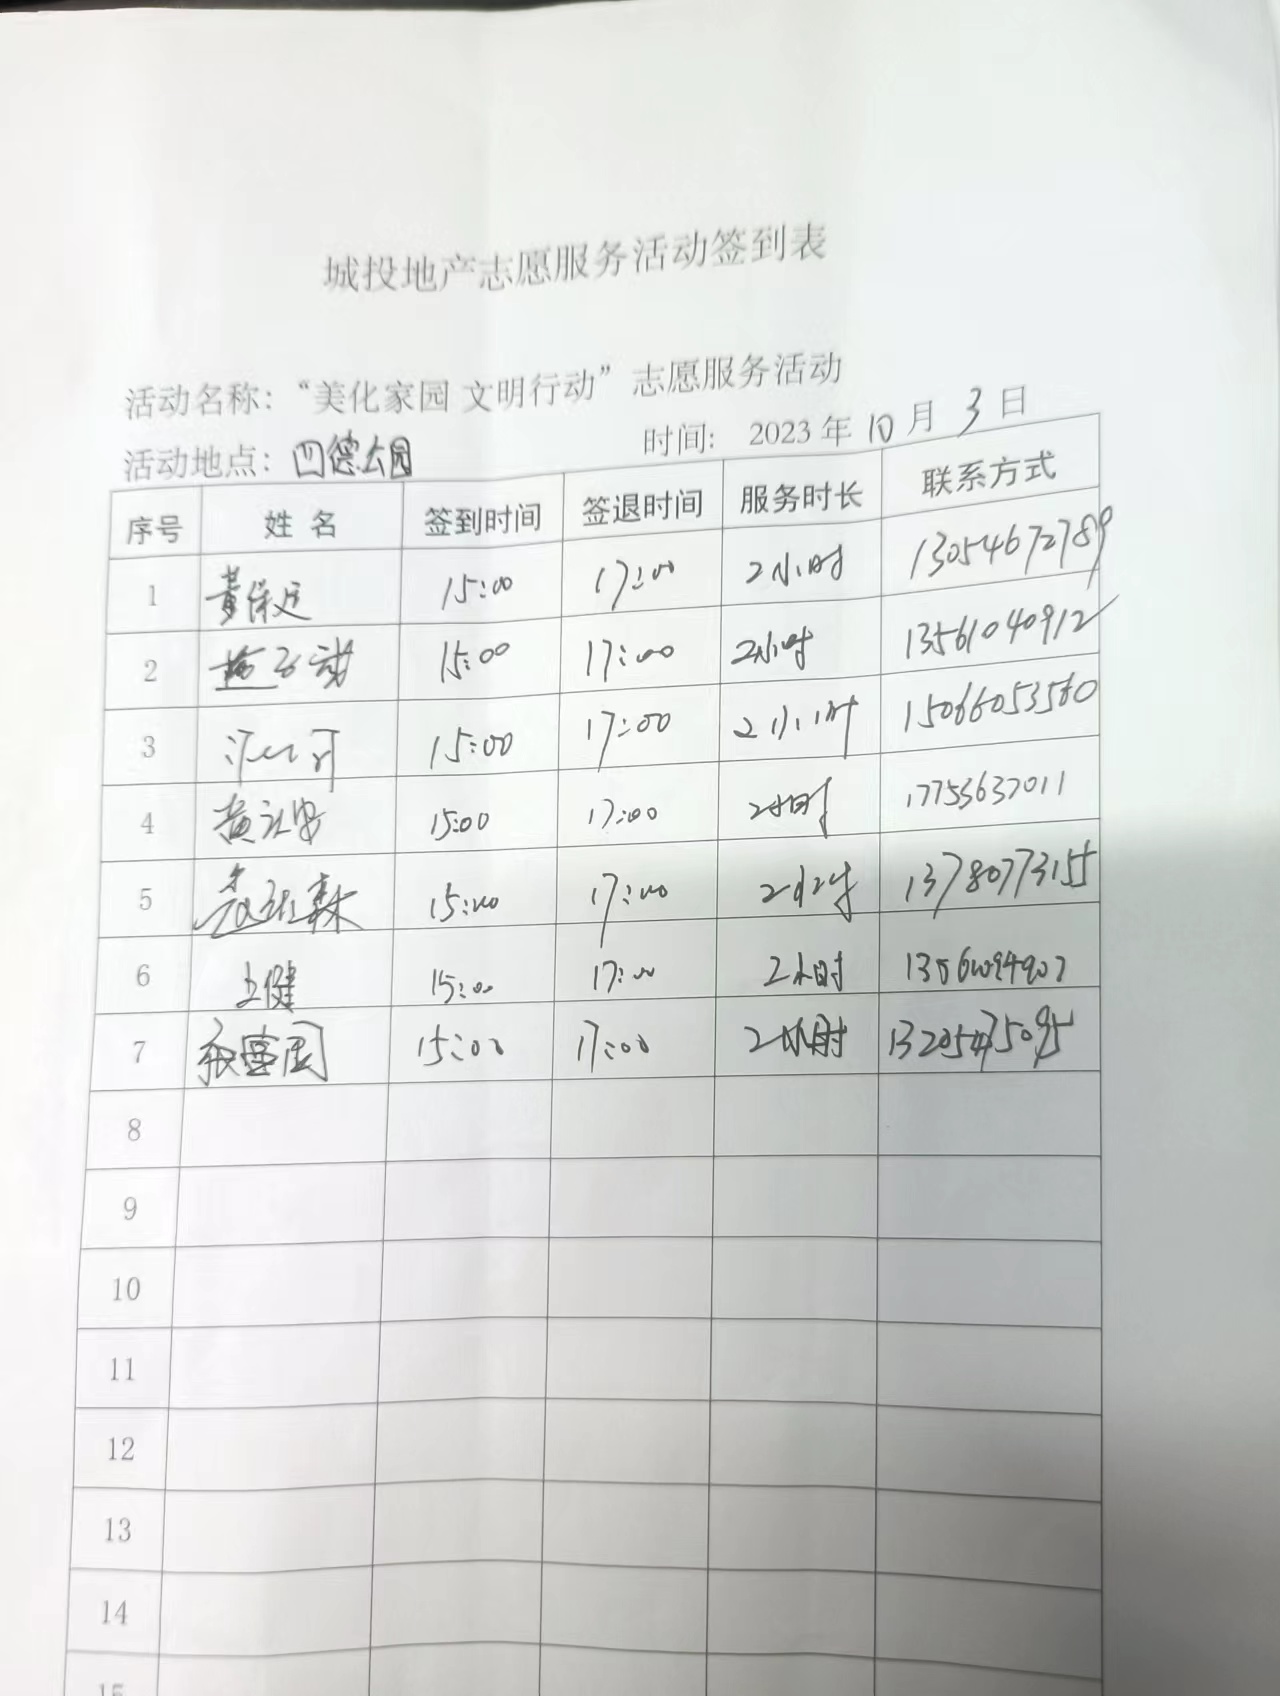 城投地产志愿服务活动签到表
活动名称：“美化家园 文明行动”志愿服务活动
活动地点：四德公园 时间： 2023 年 10 月 3 日
序号 姓 名 签到时间 签退时间 服务时长 联系方式
1 15:00 17:00 2小时 13054672789
2 15:00 17:00 2小时 13561040912
3 15:00 17:00 2小时 15066053560
4 15:00 17:00 2小时 17753637011
5 15:00 17:00 2小时 13780773155
6 王健 15:00 17:00 2小时
7 15:00 17:00 2小时
8
9
10
11
12
13
14
15